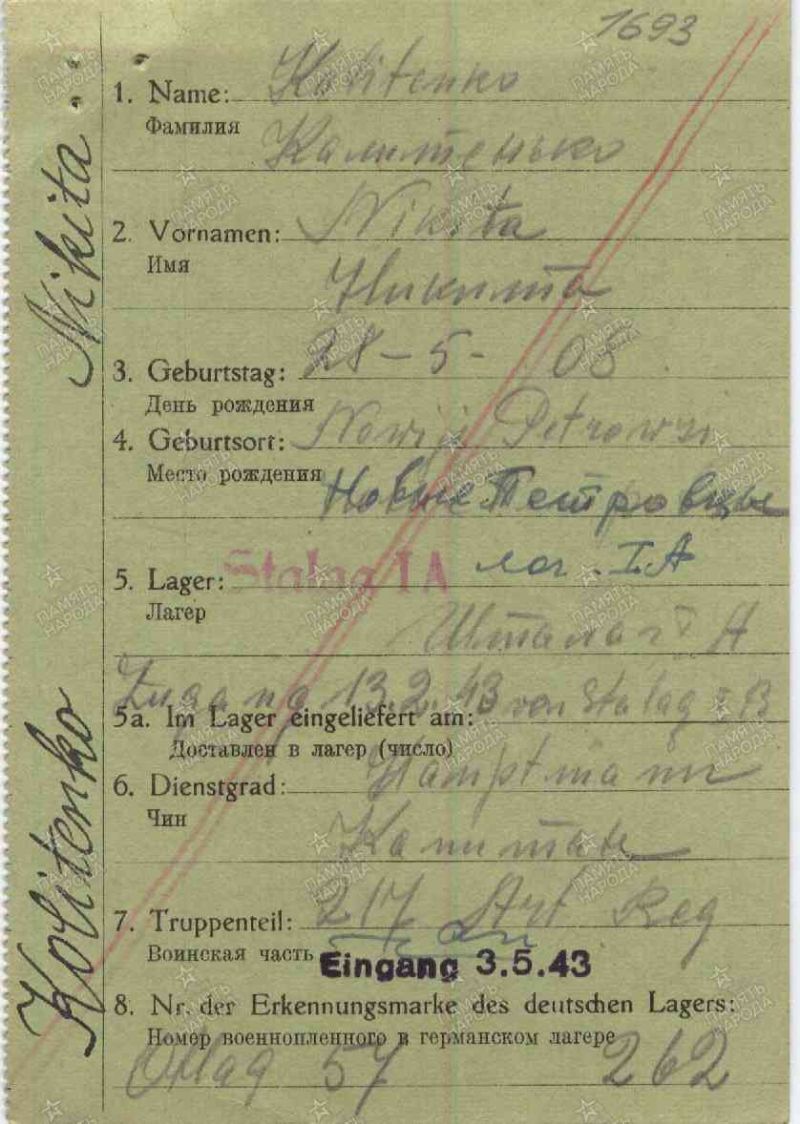 1693
1. Name: Kolitenko
Фамилия
Калитенько
2. Vornamen: Nikita
Имя
Никита
3. Geburtstag: 28-5- 05
День рождения
4. Geburtsort: Nowiji Petrowzi
Место рождения
Новые Петровцы
5. Lager: Stalag I A лаг. I A
Лагер
Шталаг I А
Zugang 13.2.43 von Stalag I B
5a. Im Lager eingeliefert am:
Доставлен в лагер (число)
6. Dienstgrad: Hauptmann
Чин
Капитан
7. Truppenteil: 217 Art Reg
Воинская часть
Eingang 3.5.43
8. Nr. der Erkennungsmarke des deutschen Lagers:
Номер военнопленного в германском лагере
Oflag 57 262
Kolitenko Nikita
ПАМЯТЬ НАРОДА